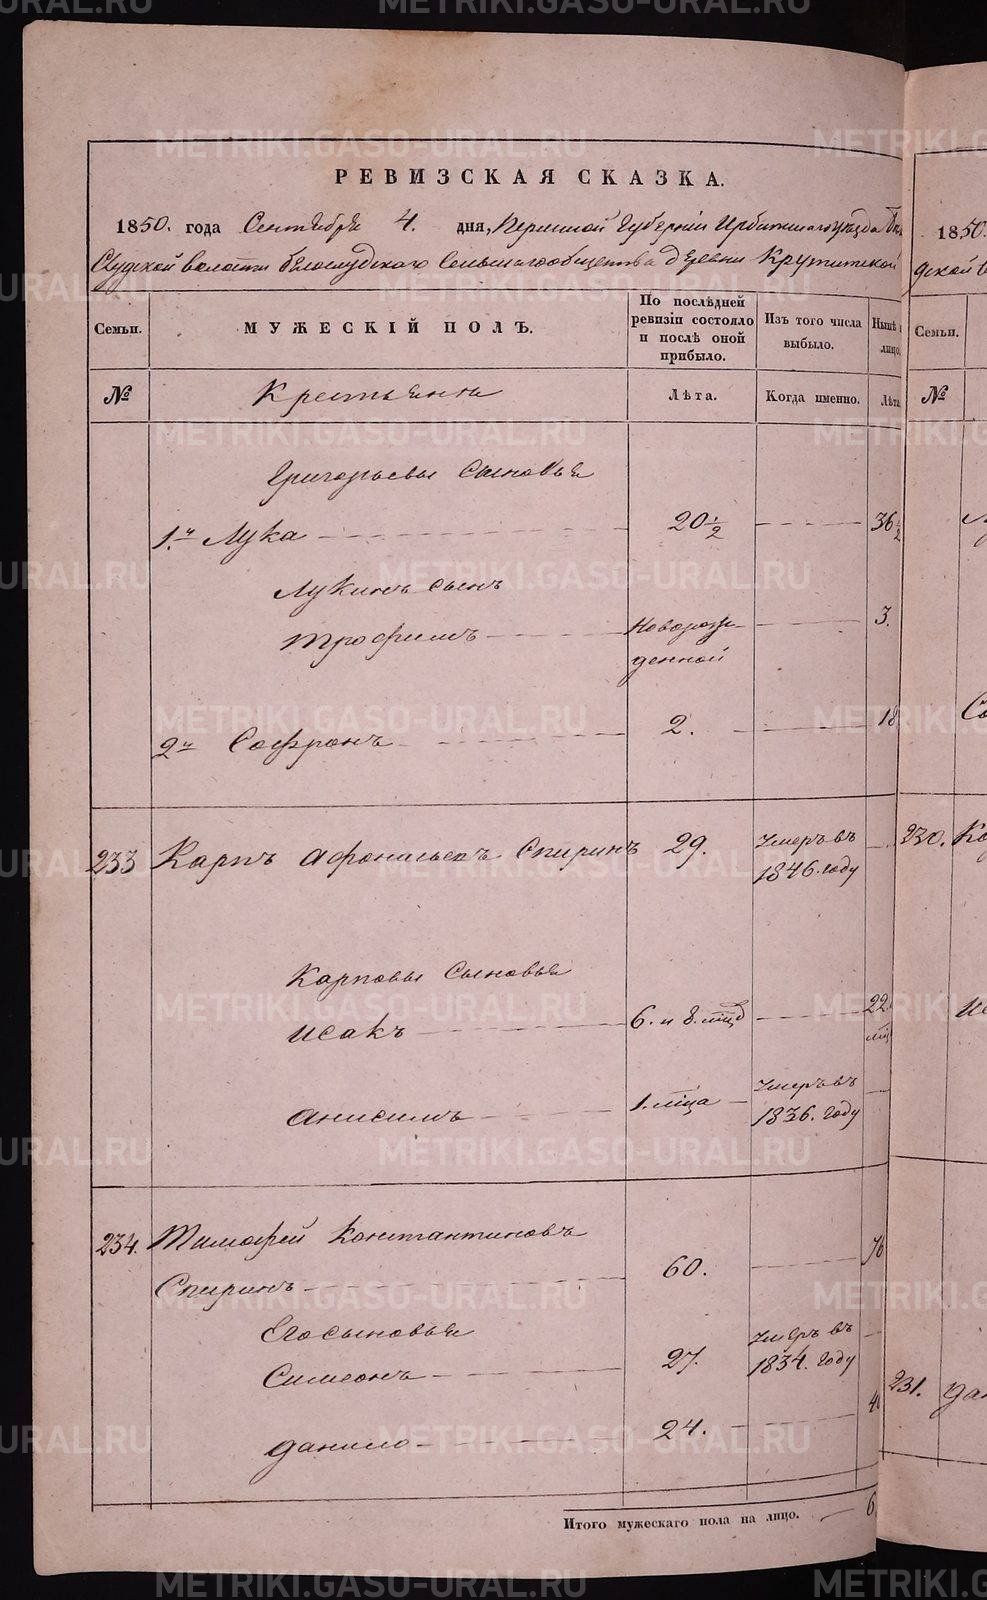 РЕВИЗСКАЯ СКАЗКА.
1850. года Сентября 4. дня, Пермской Губерніи Ирбитскаго уѣзда Бѣло
Слудской волости бѣлослудскаго Сельскаго общества деревни Крутитской
Семьи.
МУЖЕСКІЙ ПОЛЪ.
По послѣдней ревизіи состояло и послѣ оной прибыло.
Изъ того числа выбыло.
Нынѣ
лицо,
№
Крестьяни
Лѣта.
Когда именно.
Лѣта
Григорьевы Сыновья
1й Лука 20½ 36½
Лукинъ сынъ
Трофимъ Новорож- 3.
денной
2й Софронъ 2. 18
233 Карпъ Афонасьевъ Спиринъ 29. Умеръ въ
1846. году
Карповы Сыновья
Исакъ 6. и 8. мцъ 22.
мц
Анисимъ 1. мца Умеръ въ
1836. году
234. Тимофей Константиновъ
Спиринъ 60. 76
Его сыновья
Симеонъ 27. Умеръ въ
1834. году
Данило 24. 40
Итого мужескаго пола на лицо. 6
1850.
дской
Семьи.
№
230. Ка
231. Да
METRIKI.GASO-URAL.RU